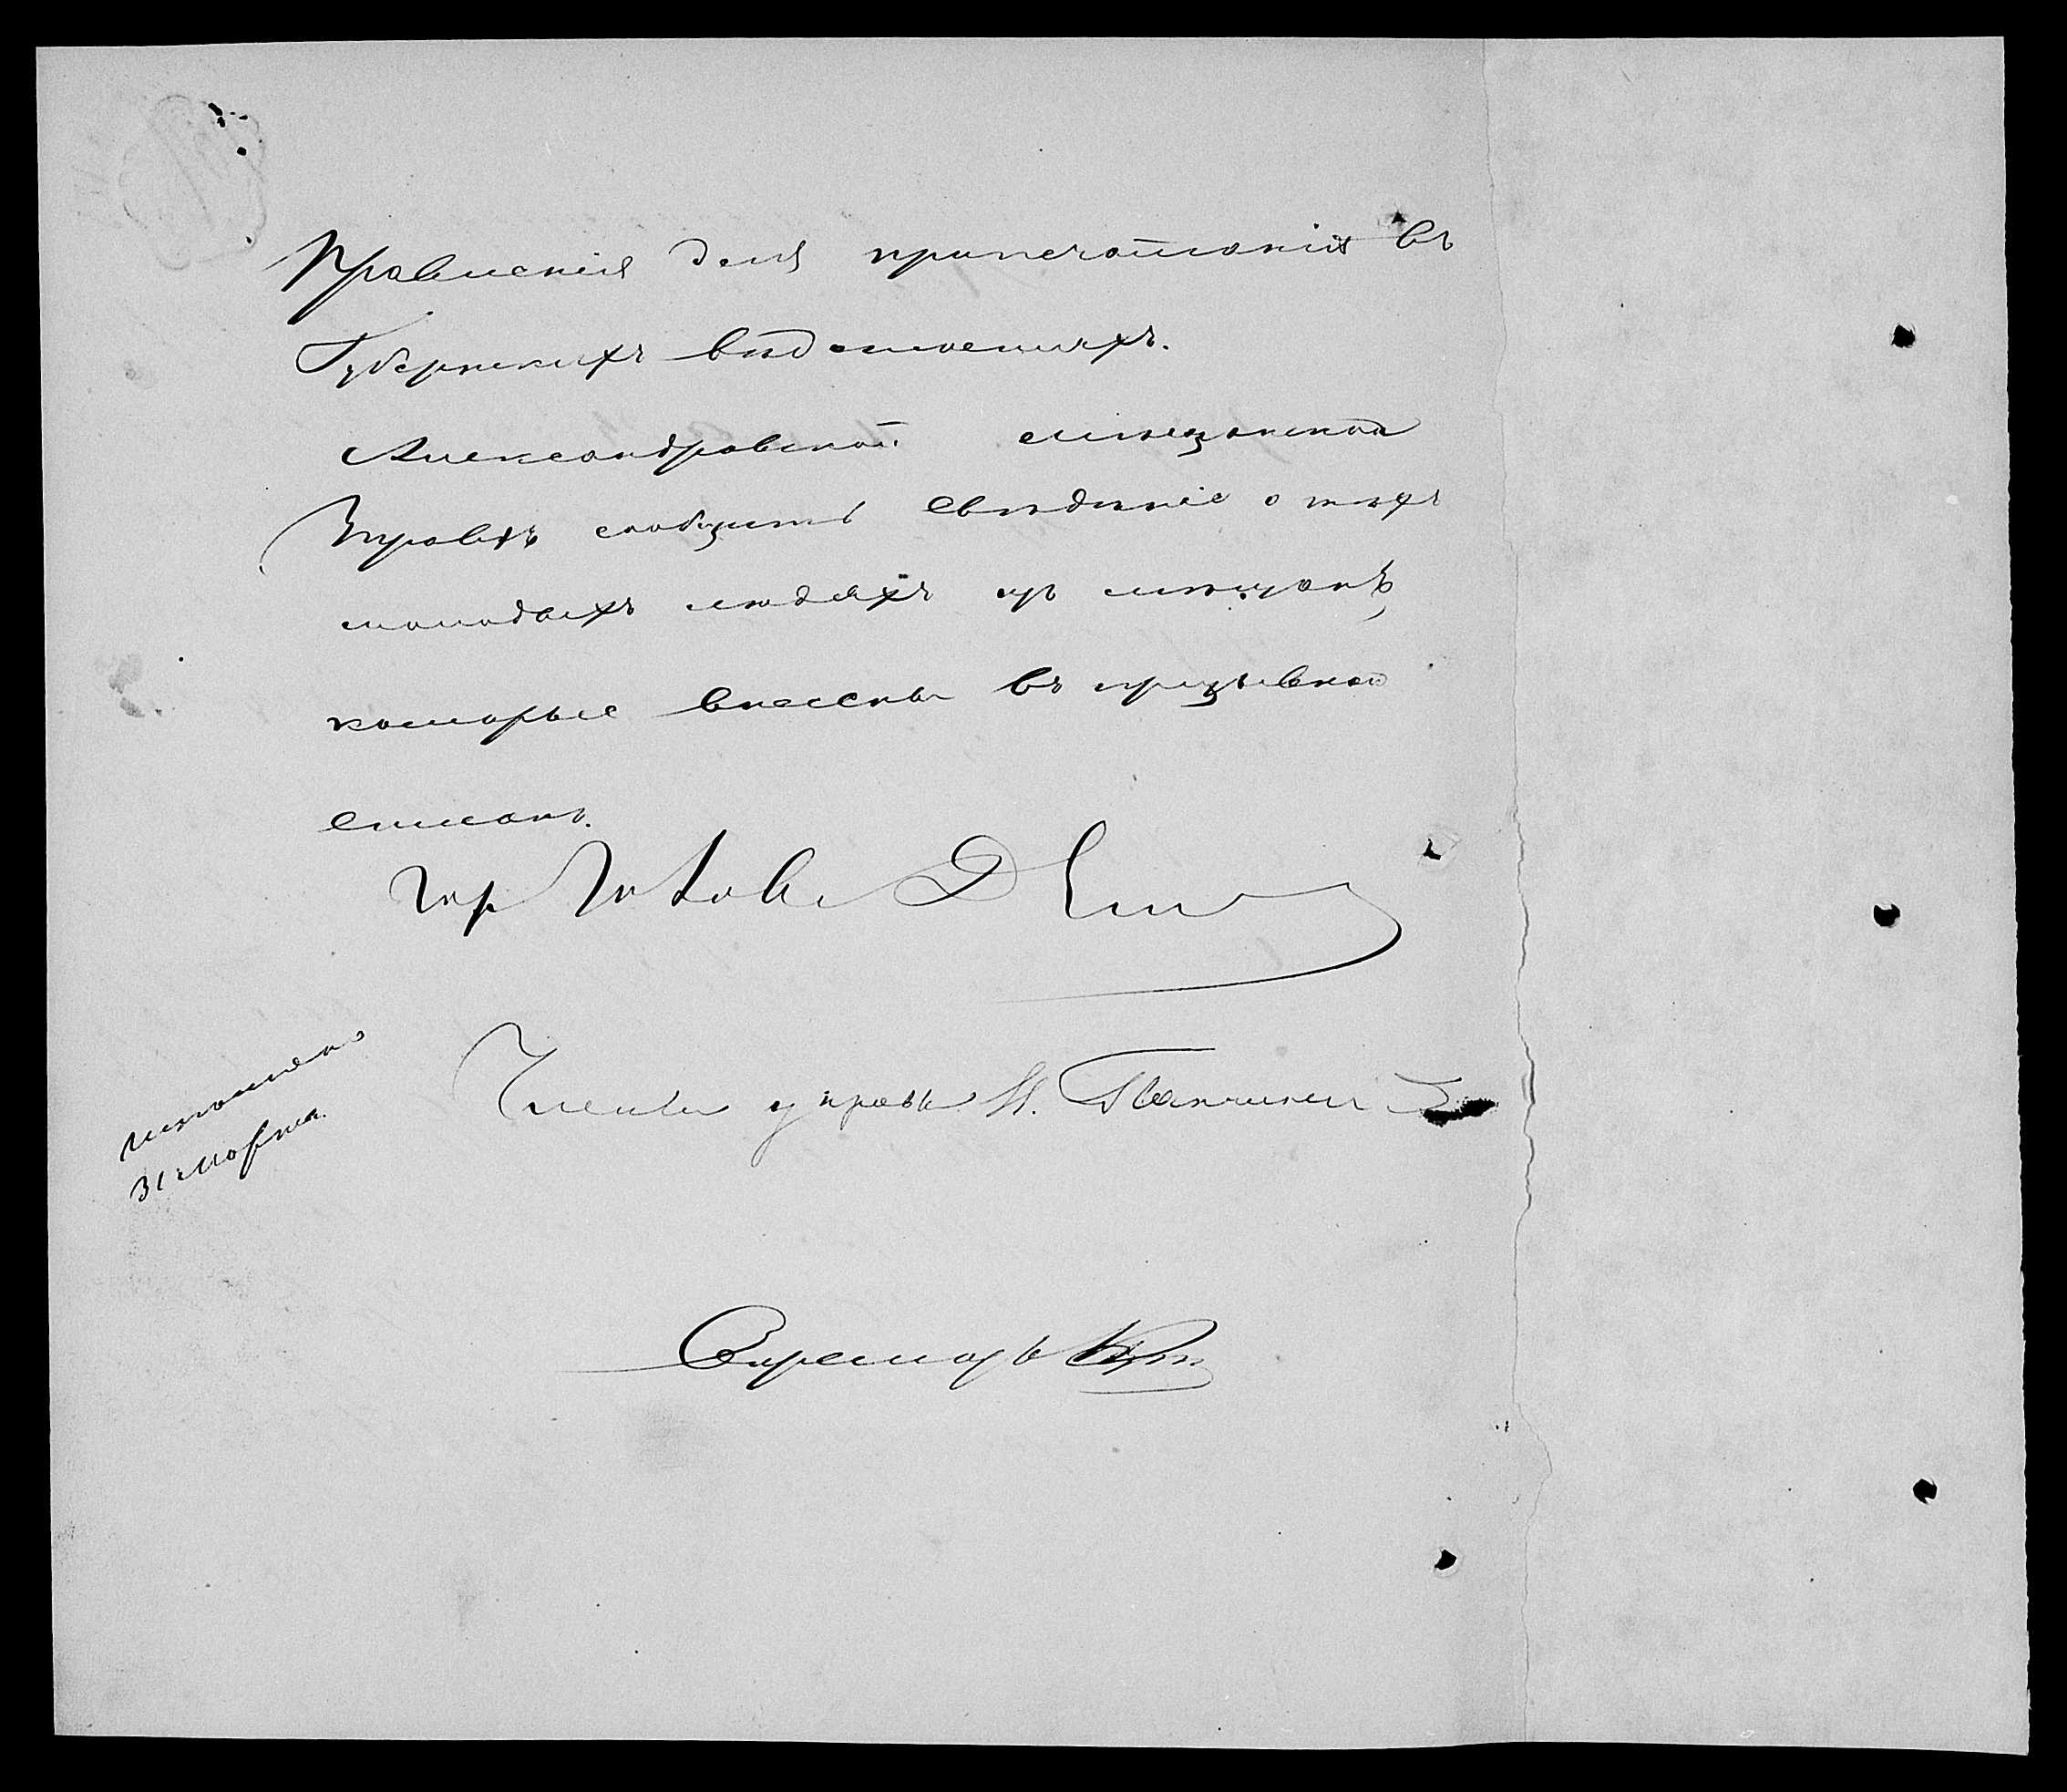 Правленія для припечатанія въ
Губернскихъ вѣдомостяхъ.
Александровской мѣщанской
Управѣ сообщить свѣдѣніе о тѣхъ
молодыхъ людяхъ изъ мѣщанъ,
которые внесены въ призывной
списокъ.
гор Голова
Члены управы И.
исполнено
31 марта
Секретарь